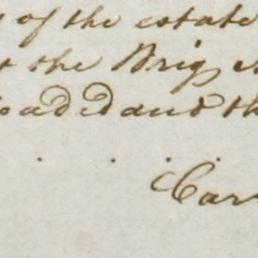 of the estate
the Brig
loaded and th
Car